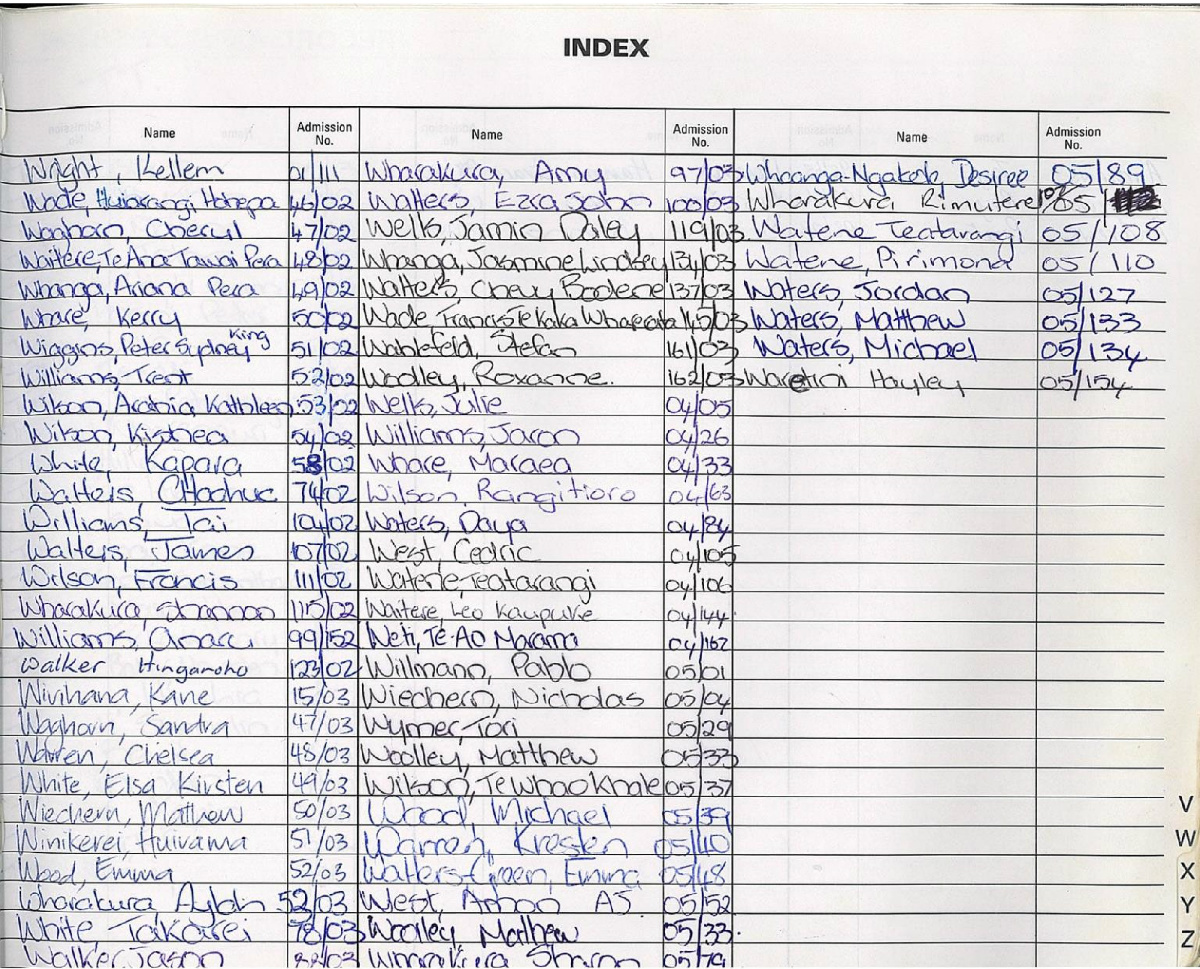 INDEX
Name Admission No. Name Admission No. Name Admission No.
Wright, Kellem 01/111 Wharakura, Amy 97/03 Whaanga-Ngakote, Desiree 05/89
Wade, Huiarangi Hohepa 46/02 Walters, Ezra John 100/03 Wharakura Rimutere 107/05
Waghorn, Cheryl 47/02 Wells, Jamin Daley 119/03 Watene Teatarangi 05/108
Waitere, Te Ana Tawai Pera 48/02 Whanga, Jasmine Lindsey 134/03 Watene, Pirimona 05/110
Whanga, Ariana Pera 49/02 Walters, Chevy Bodene 137/03 Waters, Jordan 05/127
Whare, Kerry 50/02 Wade, Francis Te Kaka 145/03 Waters, Matthew 05/133
Wiggins, Peter Sydney King 51/02 Wahlefeld, Stefan 161/03 Waters, Michael 05/134
Williams, Trent 52/02 Woolley, Roxanne. 162/03 Waretini Hayley 05/154
Wilson, Arabia, Kathleen 53/02 Wells, Julie 04/05
Wilson, Kishea 54/02 Williams, Jaron 04/26
White, Kapara 58/02 Whare, Maraea 04/33
Walters 74/02 Wilson, Rangitioro 04/63
Williams, Tai 104/02 Waters, Daya 04/84
Walters, James 107/02 West, Cedric 04/105
Wilson, Francis 111/02 Watene, Teatarangi 04/106
Wharakura, Shannon 115/02 Waitere, Leo Kaupuke 04/144
Williams, Anaru 99/152 Weti, Te Ao Marama 04/162
Walker Hingaroho 123/02 Willmann, Pablo 05/01
Wirihana, Kane 15/03 Wiechern, Nicholas 05/04
Waghorn, Sandra 47/03 Wymer, Tori 05/29
Warren, Chelsea 48/03 Woolley, Matthew 05/33
White, Elsa Kirsten 49/03 Wilson, 05/37
Wiechern, Mathew 50/03 Wood, Michael 05/39
Winikerei, Huirama 51/03 Warren, Kresten 05/40
Wood, Emma 52/03 Walters-Green, Emma 05/48
Wharakura 52/03 West, AJ 05/52
White, Takarei 78/03 Woolley Matthew 05/33.
Walker, Jason 88/03 Wharakura Sharon 05/79
V
W
X
Y
Z